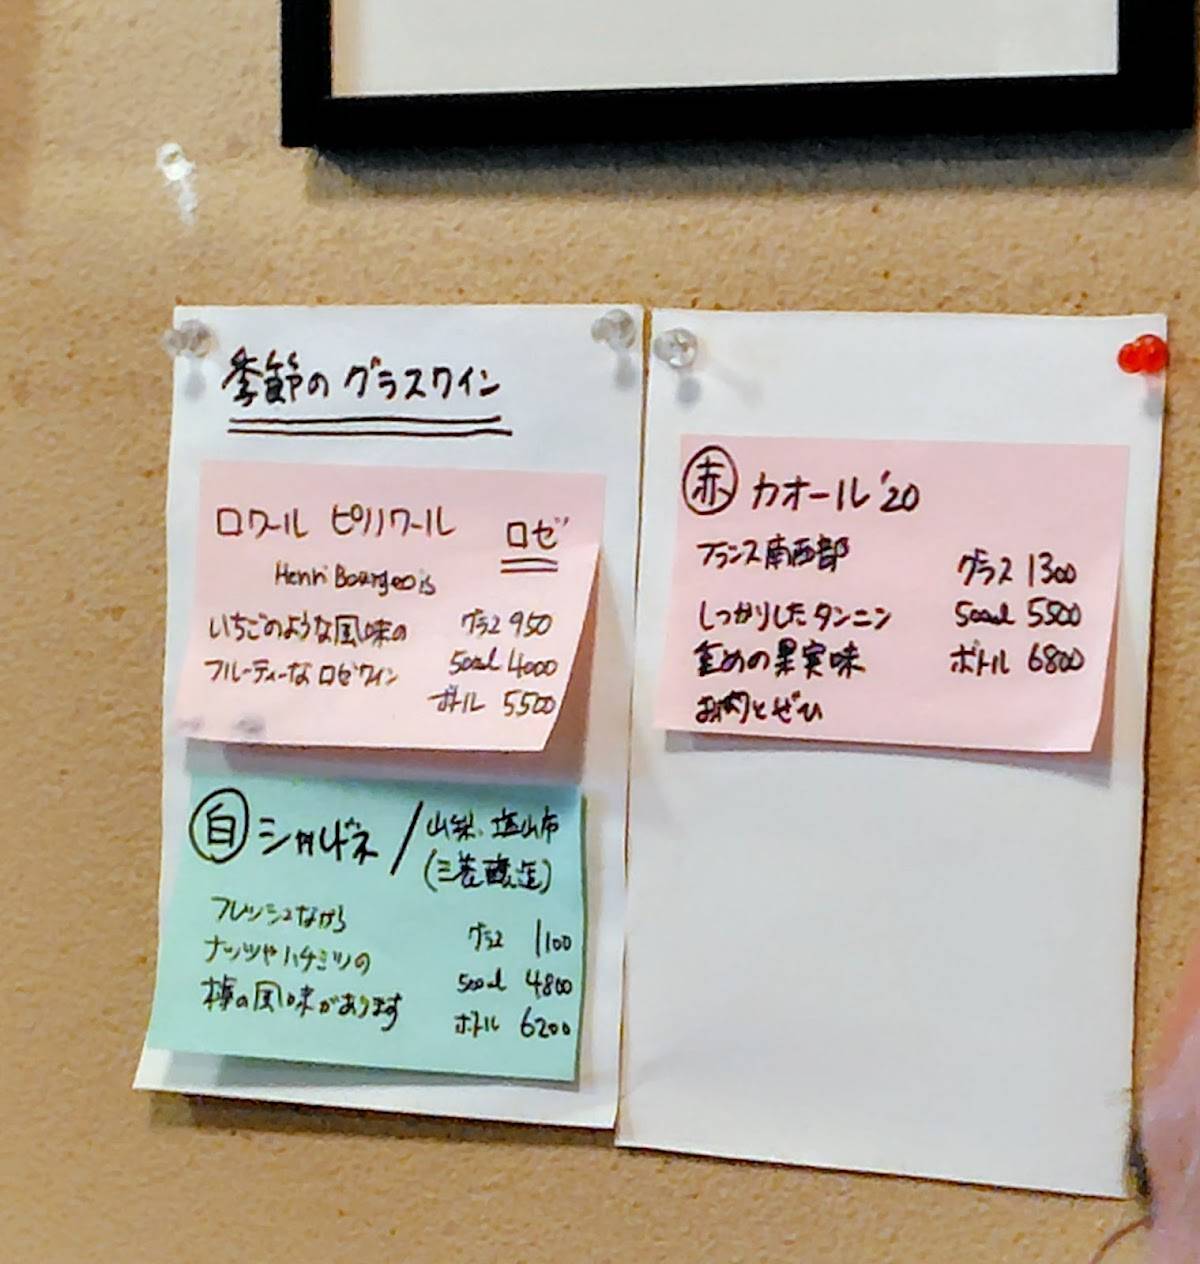 季節のグラスワイン
ロワール ピノノワール ロゼ
Henri Bourgeois
いちごのような風味の
フルーティーなロゼワイン
グラス 950
500ml 4000
ボトル 5500
白 シャルドネ / 山梨、塩山市
(三養醸造)
フレッシュながら
ナッツやハチミツの
様の風味があります
グラス 1100
500ml 4800
ボトル 6200
赤 カオール '20
フランス南西部
しっかりしたタンニン
の果実味
お肉とぜひ
グラス 1300
500ml 5500
ボトル 6800